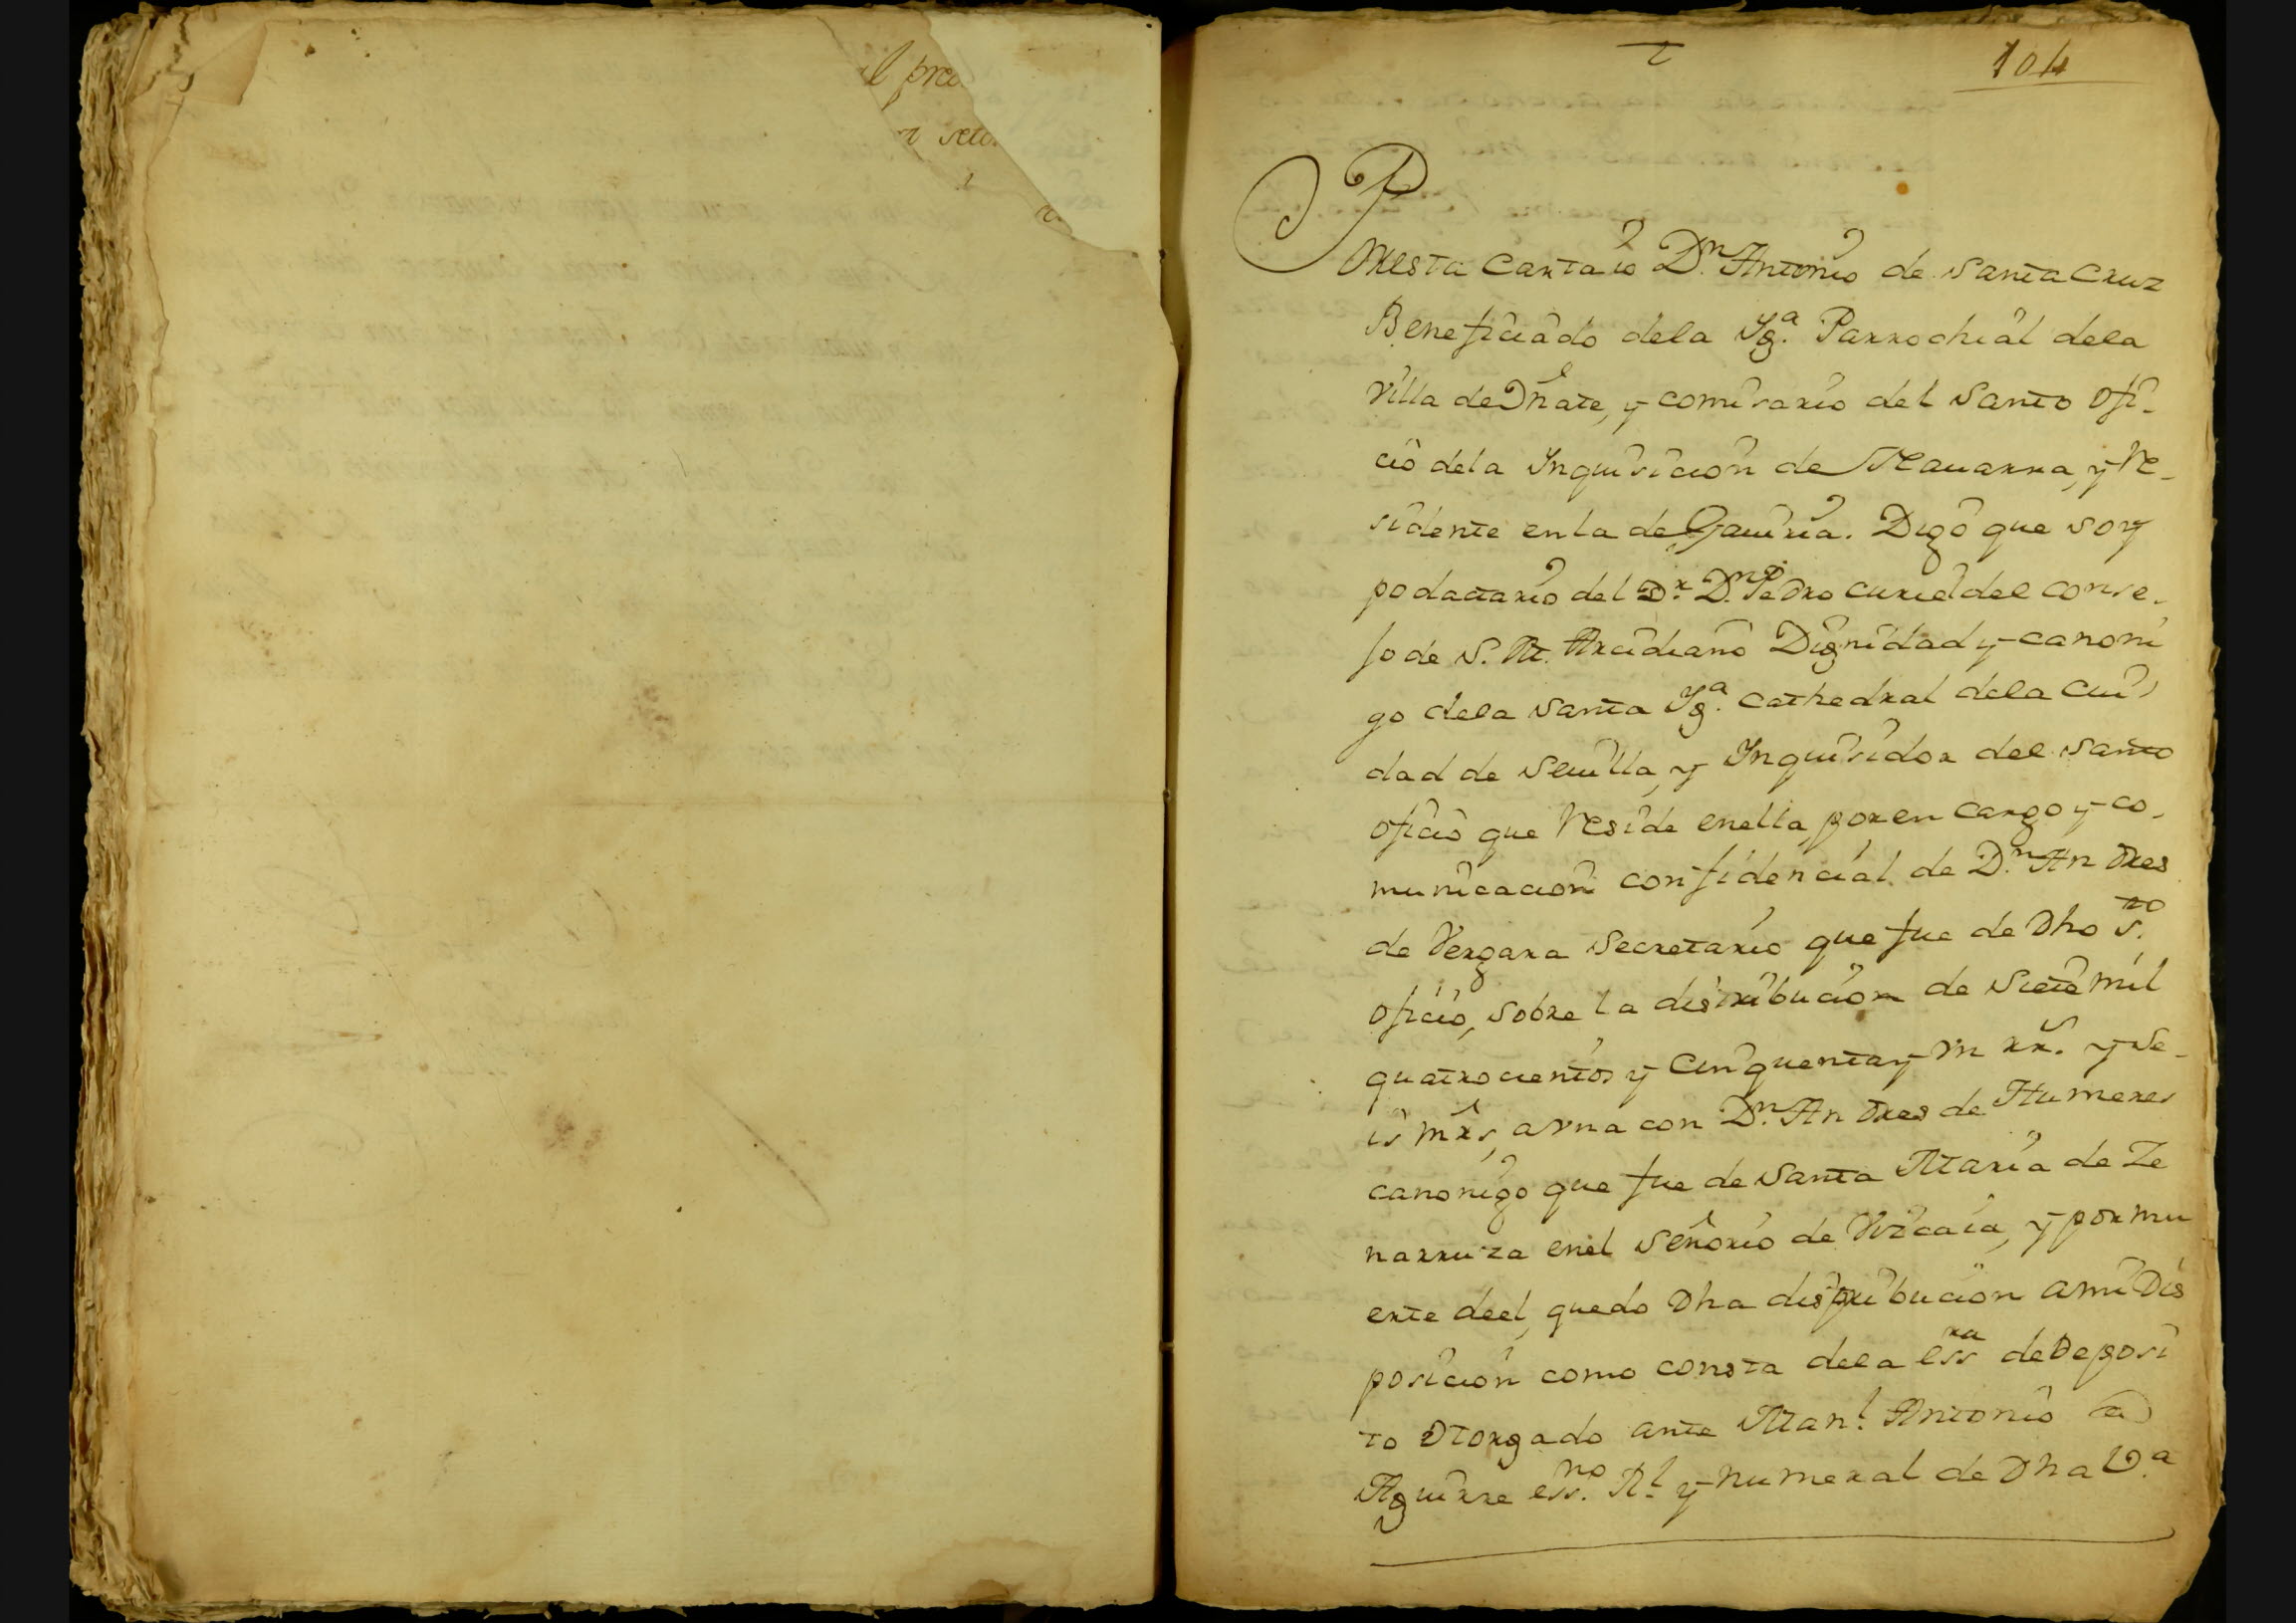 l pre
n seti
104
Por esta Carta io Dn. Antonio de Santa Cruz
Beneficiado dela Yga. Parrochial dela
Villa de Oñate, y comisario del Santo Ofi-
cio dela Inquisicion de Nauarra, y Re-
sidente en la de Gauiria. Digo que soy
podactario del Dr. Dn. Pedro curiel del conse-
jo de S. M. Arcidiano Dignidad y canoni
go dela Santa Yga. Cathedral dela Ciu
dad de Seuilla, y Inquisidor del Santo
Oficio que Reside enella, por en cargo y co-
municacion confidencial de Dn. Andres
de Vergara Secretario que fue de Dho Sto.
Oficio, sobre la distribucion de Siete mil
quatrocientos y Cinquenta y Vn rrs. y Se-
is mrs, a vna con Dn. Andres de Humeres
canonigo que fue de Santa Maria de Ze
narruza enel Señorio de Vizcaia, y por mu
erte deel, quedo Dha distribucion a mi Dis
posicion como consta dela essra de Deposi
to Otorgado ante Manl. Antonio de
Aguirre essno. Rl. y numeral de Dha Va.